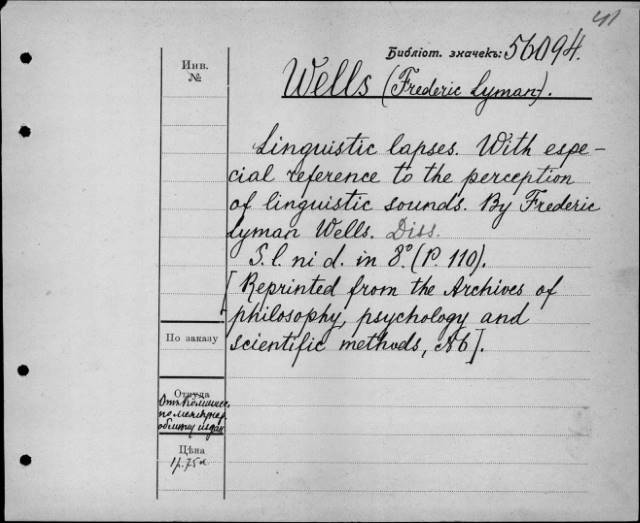 41
Библіот. значекъ: 56094.
Инв.
№
Wells (Frederic Lyman).
Linguistic lapses. With espe-
cial reference to the perception
of linguistic sounds. By Frederic
Lyman Wells. Diss.
S. l. ni d. in 8°. (P. 110).
[Reprinted from the Archives of
philosophy, psychology and
scientific methods, №6].
По заказу
Откуда
Отъ Комисс.
по междунар.
обмѣну издан.
Цѣна
1р. 75к.